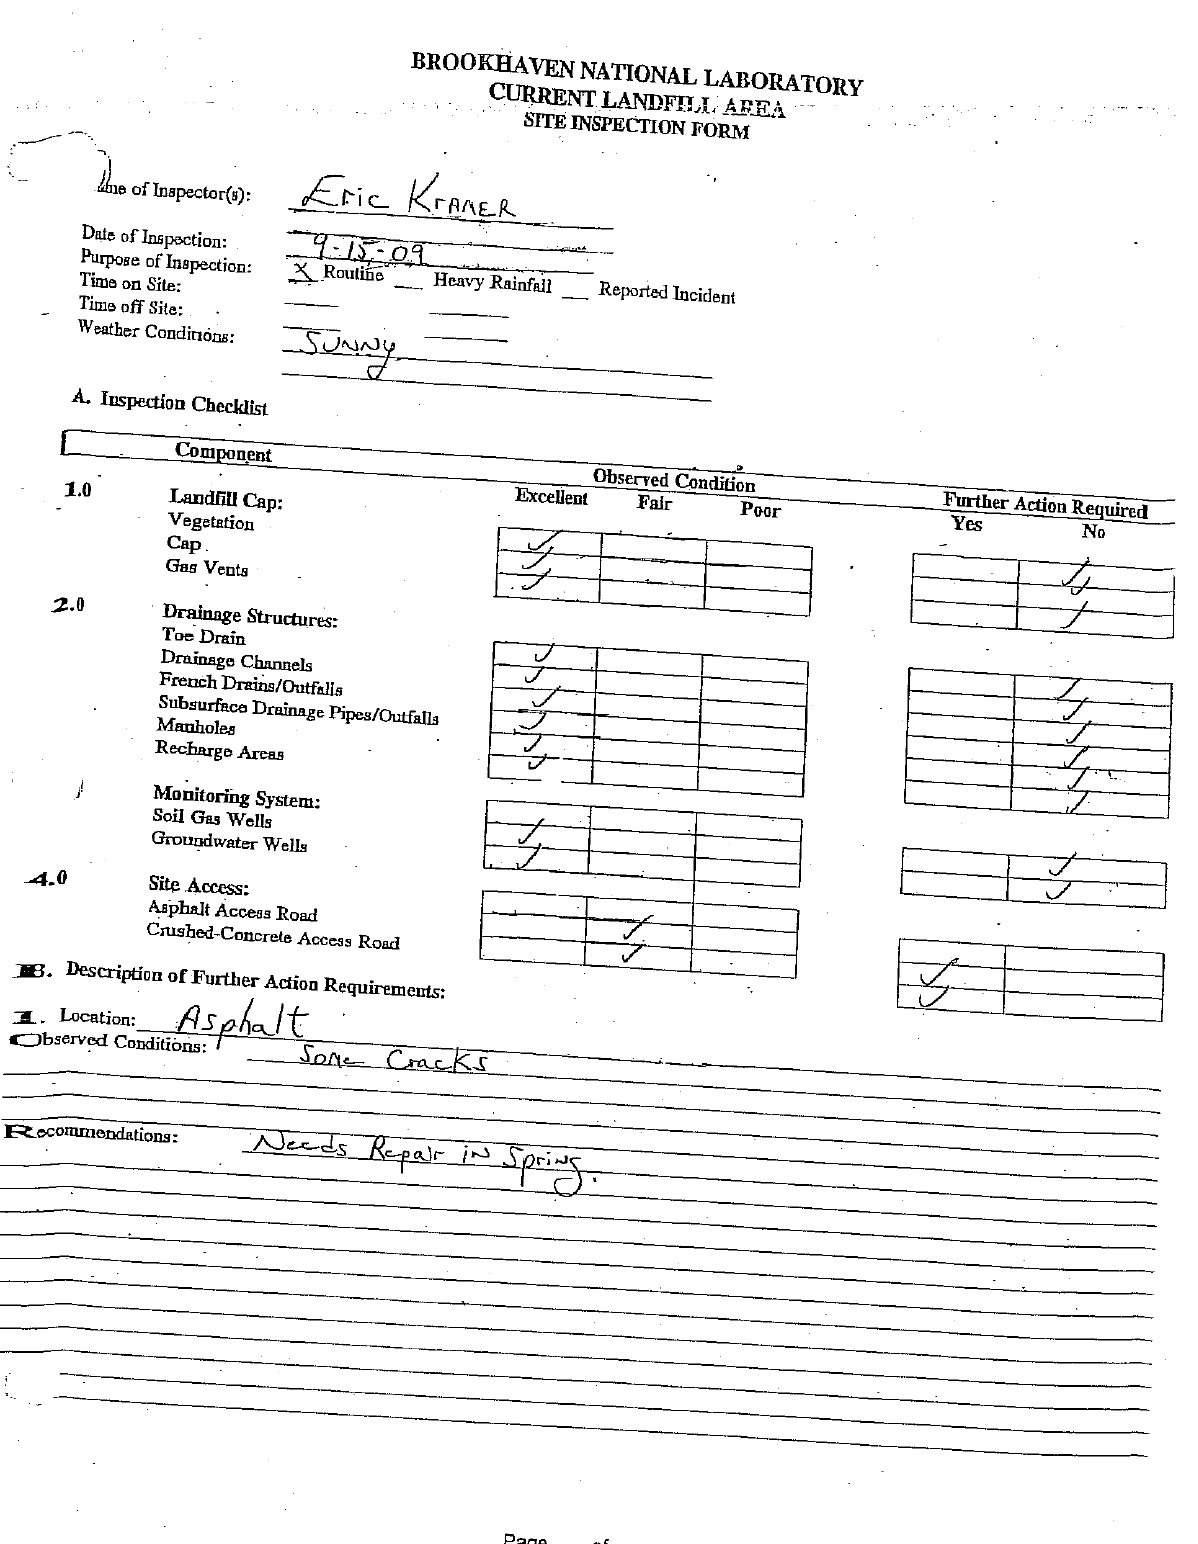 BROOKHAVEN NATIONAL LABORATORY
CURRENT LANDFILL AREA
SITE INSPECTION FORM
me of Inspector(s): Eric Kramer
Date of Inspection: 9-15-09
Purpose of Inspection: X Routine __ Heavy Rainfall __ Reported Incident
Time on Site:
Time off Site:
Weather Conditions: Sunny
A. Inspection Checklist
Component Observed Condition Further Action Required
Excellent Fair Poor Yes No
1.0 Landfill Cap:
Vegetation ✓ ✓
Cap ✓ ✓
Gas Vents ✓ ✓
2.0 Drainage Structures:
Toe Drain ✓ ✓
Drainage Channels ✓ ✓
French Drains/Outfalls ✓ ✓
Subsurface Drainage Pipes/Outfalls ✓ ✓
Manholes ✓ ✓
Recharge Areas ✓ ✓
Monitoring System:
Soil Gas Wells ✓ ✓
Groundwater Wells ✓ ✓
4.0 Site Access:
Asphalt Access Road ✓ ✓
Crushed-Concrete Access Road ✓ ✓
B. Description of Further Action Requirements:
1. Location: Asphalt
Observed Conditions: Some Cracks
Recommendations: Needs Repair in Spring.
Page of